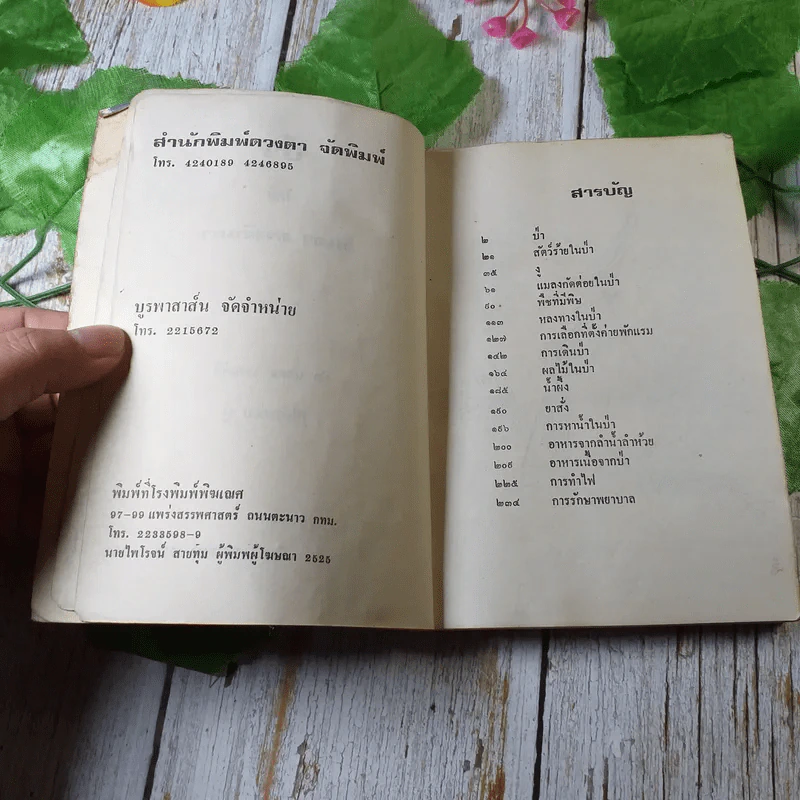 สำนักพิมพ์ดวงตา จัดพิมพ์
โทร. 4240189 4246895
บูรพาสาส์น จัดจำหน่าย
โทร. 2215672
พิมพ์ที่โรงพิมพ์พิฆเณศ
97-99 แพร่งสรรพศาสตร์ ถนนตะนาว กทม.
โทร. 2233598-9
นายไพโรจน์ สายทุ้ม ผู้พิมพ์ผู้โฆษณา 2525
สารบัญ
๒ ป่า
๒๑ สัตว์ร้ายในป่า
๓๕ งู
๖๑ แมลงกัดต่อยในป่า
๙๐ พืชที่มีพิษ
๑๑๓ หลงทางในป่า
๑๒๗ การเลือกที่ตั้งค่ายพักแรม
๑๔๒ การเดินป่า
๑๖๔ ผลไม้ในป่า
๑๘๕ น้ำผึ้ง
๑๙๐ ยาสั่ง
๑๙๖ การหาน้ำในป่า
๒๐๐ อาหารจากลำน้ำลำห้วย
๒๐๙ อาหารเนื้อจากป่า
๒๒๕ การทำไฟ
๒๓๔ การรักษาพยาบาล